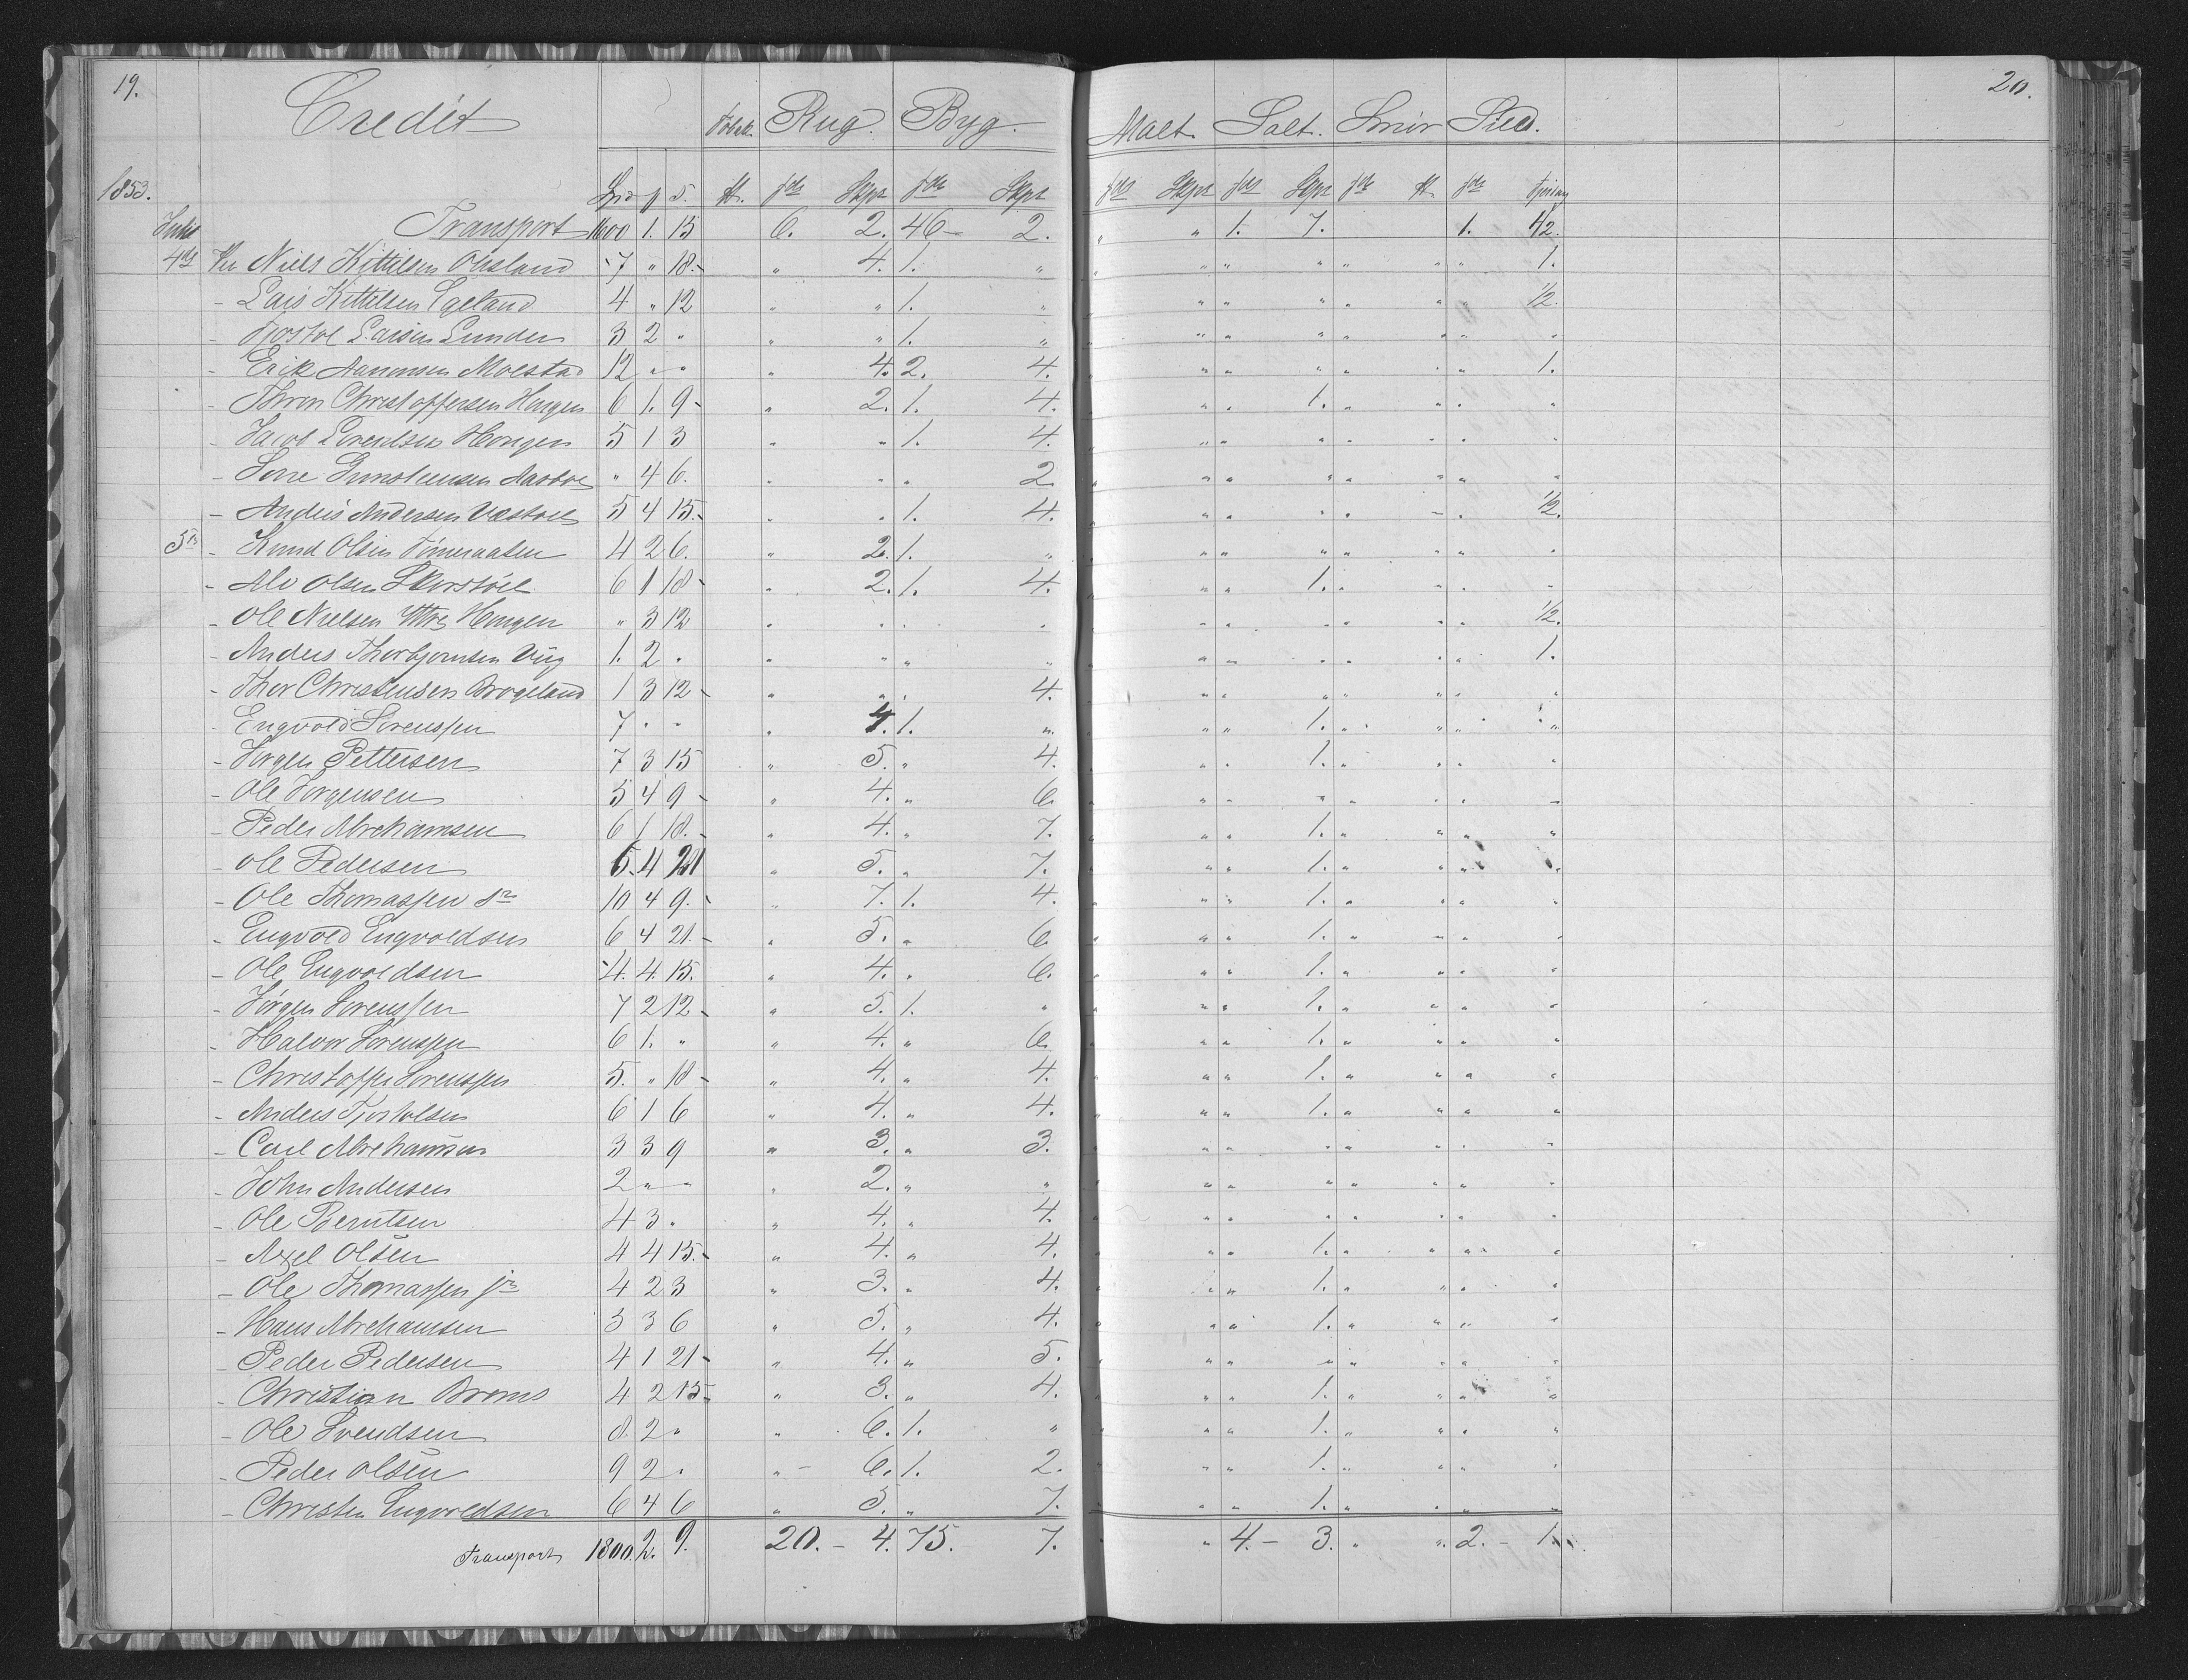 19. 20.
Credit Tobak. Rug. Byg. Malt. Salt. Smör Sild.
1853. Spd f s. ℔. fdr Skpr fdr Skpr fdr Skpr fdr Skpr fdr ℔ fdr Fjering
Juli Transport 1600 1. 15 6. 2. 46 – 2. " " 1. 7. 1. 1/2.
4de Per Niels Kittilsen Ousland 7 " 18. " 4. 1. " " " " " " " " 1.
- Lars Kittilsen Egeland 4 " 12 " " 1. " " " " " " " 1/2.
- Tjostol Larsen Lunden 3 2 " " " 1. " " " " " " " " "
- Erik Aanonsen Moestad 12 " " " 4. 2. 4. " " " " " " " 1.
- Thron Christoffersen Hougen 6 1. 9 - " 2. 1. 4. " " 1. " " " "
- Jacob Lorentsen Hougen 5 1 3 " " 1. 4. " " " " " " "
- Sorre Gunsteensen Aasboe " 4 6. " " " 2. " " " " " " "
- Anders Andersen Væstoel 5 4 15. - " " 1. 4. " " " " " " 1/2.
5te - Knud Olsen Timeraasen 4 2 6. " 2. 1. " " " " " " " "
- Alv Olsen Skorstöl 6 1 18 - " 2. 1. 4. " " 1. " " " "
- Ole Nielsen Yttre Hougen " 3 12 " " " " " " " " " " 1/2.
- Anders Thorbjornsen Vüg 1. 2 " " " " " " " " " " " 1.
- Thor Christensen Brogeland 1 3 12 - " " " 4. " " " " " " "
- Engvold Sorenssen 7 " " " 4. 1. " " " 1. " " " "
- Jorgen Pettersen 7 3 15 " 5. " 4. " " 1. " " " "
- Ole Jorgensen 5 4 9 - " 4. " 6. " " " " " " "
- Peder Abrehamsen 6 1 18. - " 4. " 7. " " 1. " " " "
- Ole Pedersen 6. 4 21 " 5. " 7. " " 1. " " " "
- Ole Thomassen sr 10 4 9. - " 7. 1. 4. " " 1. " " " "
- Engvold Engvoldsen 6 4 21. - " 5. " 6. " " 1. " " " "
- Ole Engvoldsen 4. 4 15. " 4. " 6. " " 1. " " " "
- Jörgen Sorenssen 7 2 12 - " 5. 1. " " " 1. " " " "
- Halvor Sorenssen 6 1. " " 4. " 6. " " 1. " " " "
- Christoffer Sorenssen 5. " 18 - " 4. " 4. " " 1. " " " "
- Anders Tjostolsen 6 1 6 " 4. " 4. " " 1. " " " "
- Carl Abrehamsen 3 3 9 " 3. " 3. " " " " " " "
- John Andersen 2 " " " 2. " " " " " " " " "
- Ole Berntsen 4 3 " " 4. " 4. " " " " " " "
- Axel Olsen 4 4 15. - " 4. " 4. " " 1. " " " "
- Ole Thomassen jr 4 2 3 " 3. " 4. " " 1. " " " "
- Hans Abrehamsen 5 3 6 " 5. " 4. " " 1. " " " "
- Peder Pedersen 4 1 21 - " 4. " 5. " " " " " " "
- Christian Broms 4 2 15 - " 3. " 4. " " 1. " " " "
- Ole Svendsen 8. 2 " " 6. 1. " " " 1. " " " "
- Peder Olsen 9 2 " " - 6. 1. 2. " " 1. " " " "
- Christen Engvoldsen 6 4 6 " 5. " 7. " " 1. " " " "
Transport 1800. 2. 9. 20. - 4. 75. 7. " 4. - 3. " " 2. - 1.